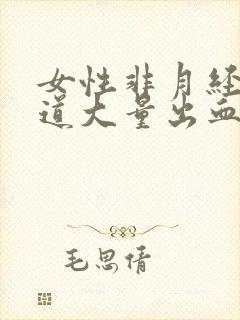 女性非月经
道大量出血
毛思倩